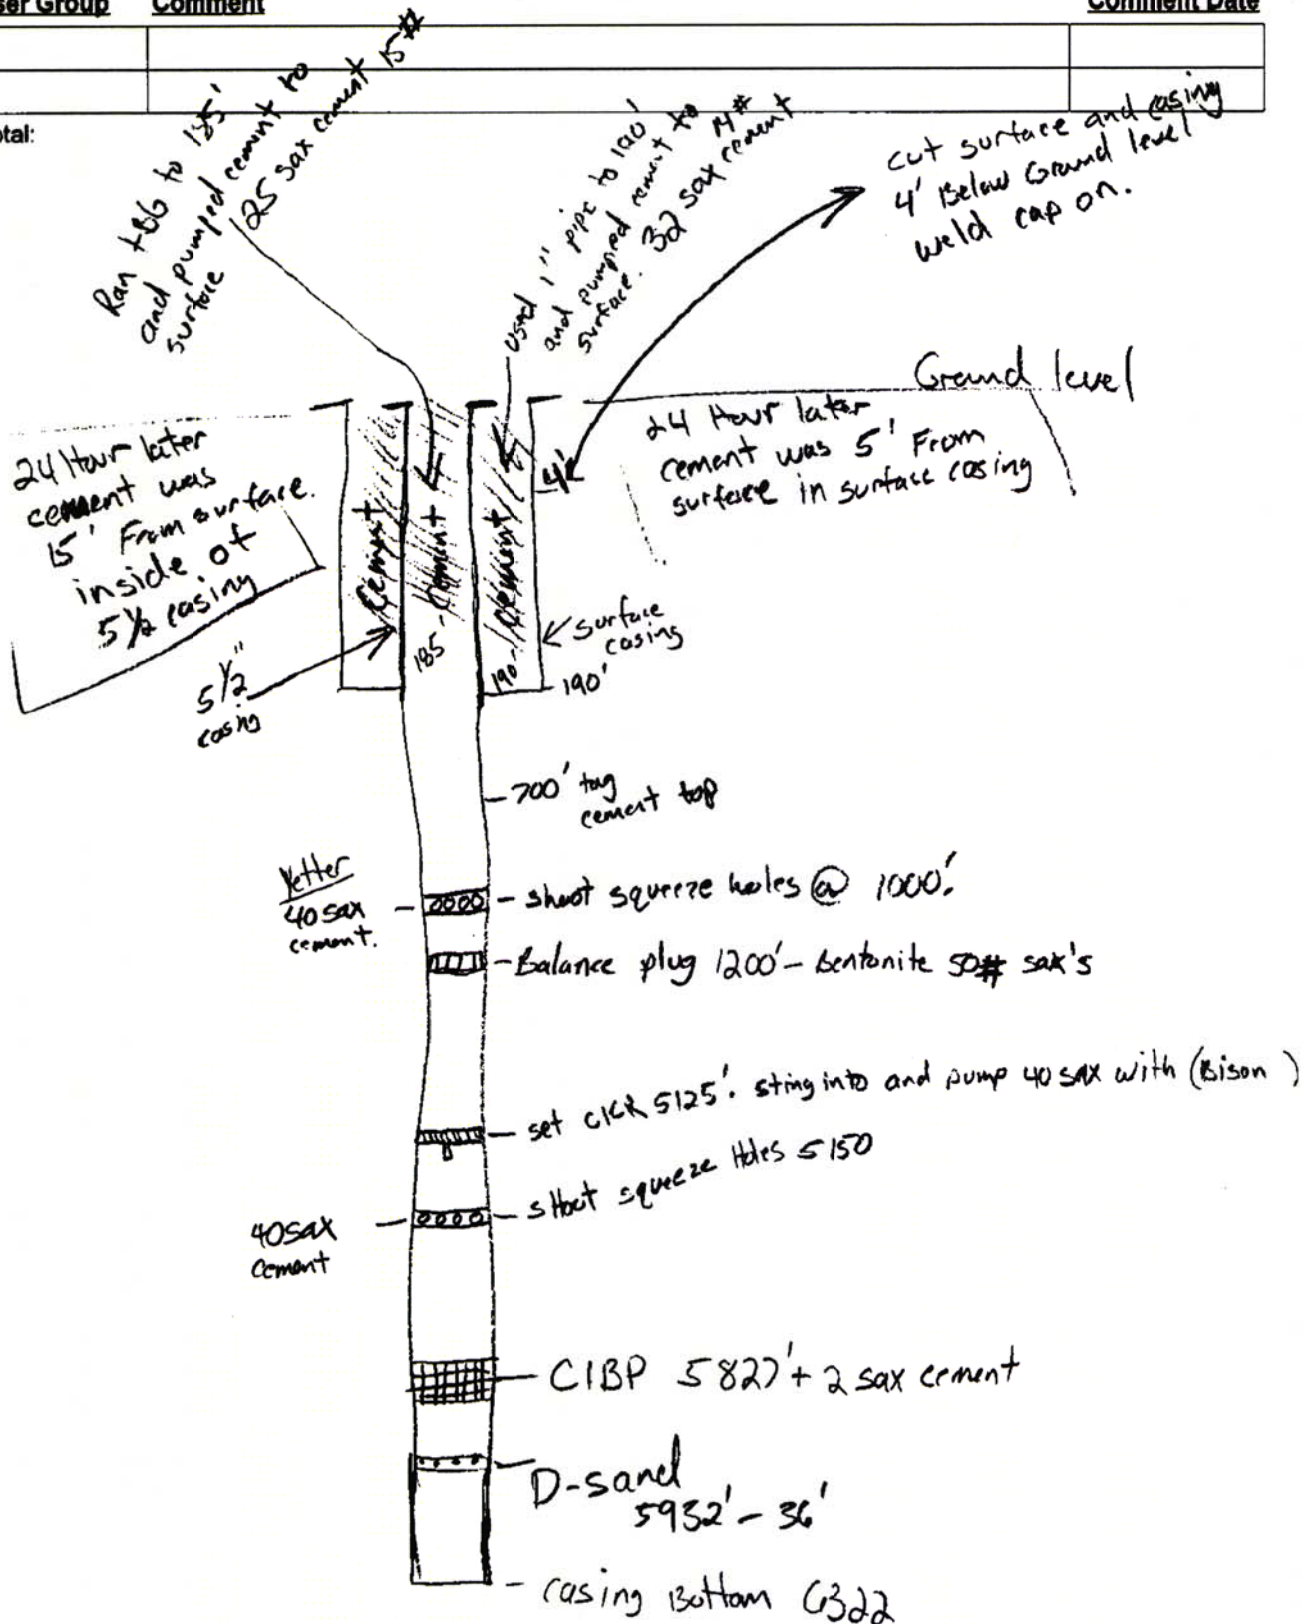 ser Group Comment Comment Date
otal:
Ran tBG to 185'
and pumped cement to
surface 125 sax cement 15#
used 1" pipe to 190'
and pumped cement to
surface. 32 sax cement 14#
cut surface and casing
4' Below Ground level
weld cap on.
Ground level
24 Hour later
cement was
15' From surface.
inside of
5 1/2 casing
24 Hour later
cement was 5' From
surface in surface casing
4'
Cement
Cement
Cement
185
190
surface
casing
190'
5 1/2"
casing
700' tag
cement top
Yetter
40 sax
cement.
shoot squeeze holes @ 1000'.
Balance plug 1200' - Bentonite 50# sax's
set CICR 5125'. sting into and pump 40 sax with (Bison)
shoot squeeze Holes 5150
40 sax
cement
CIBP 5827' + 2 sax cement
D-sand
5932' - 36'
casing Bottom 6322